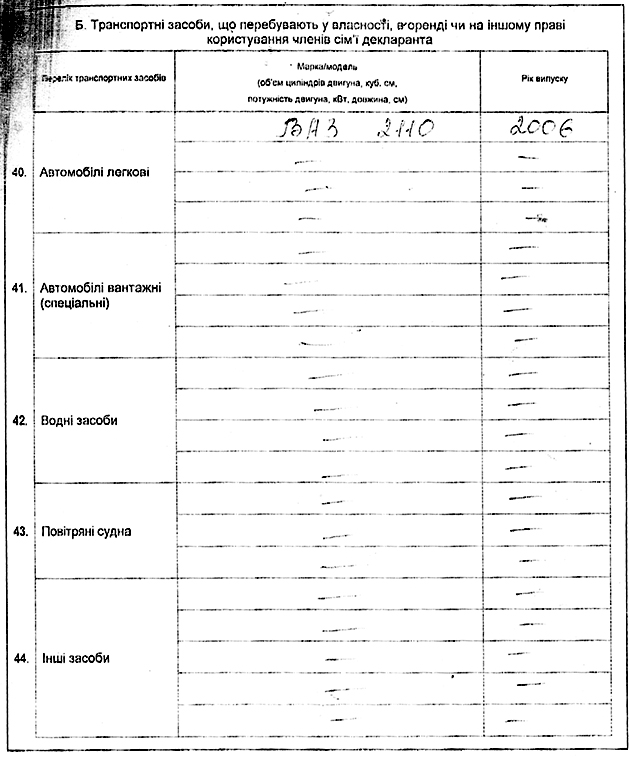 Б. Транспортні засоби, що перебувають у власності, в оренді чи на іншому праві
користування членів сім'ї декларанта
Перелік транспортних засобів
Марка/модель
(об'єм циліндрів двигуна, куб. см,
потужність двигуна, кВт, довжина, см)
Рік випуску
ВАЗ 2110 2006
— —
40. Автомобілі легкові
— —
— —
— —
— —
41. Автомобілі вантажні
(спеціальні)
— —
— —
— —
— —
42. Водні засоби
— —
— —
— —
43. Повітряні судна
— —
— —
— —
— —
44. Інші засоби
— —
— —
— —